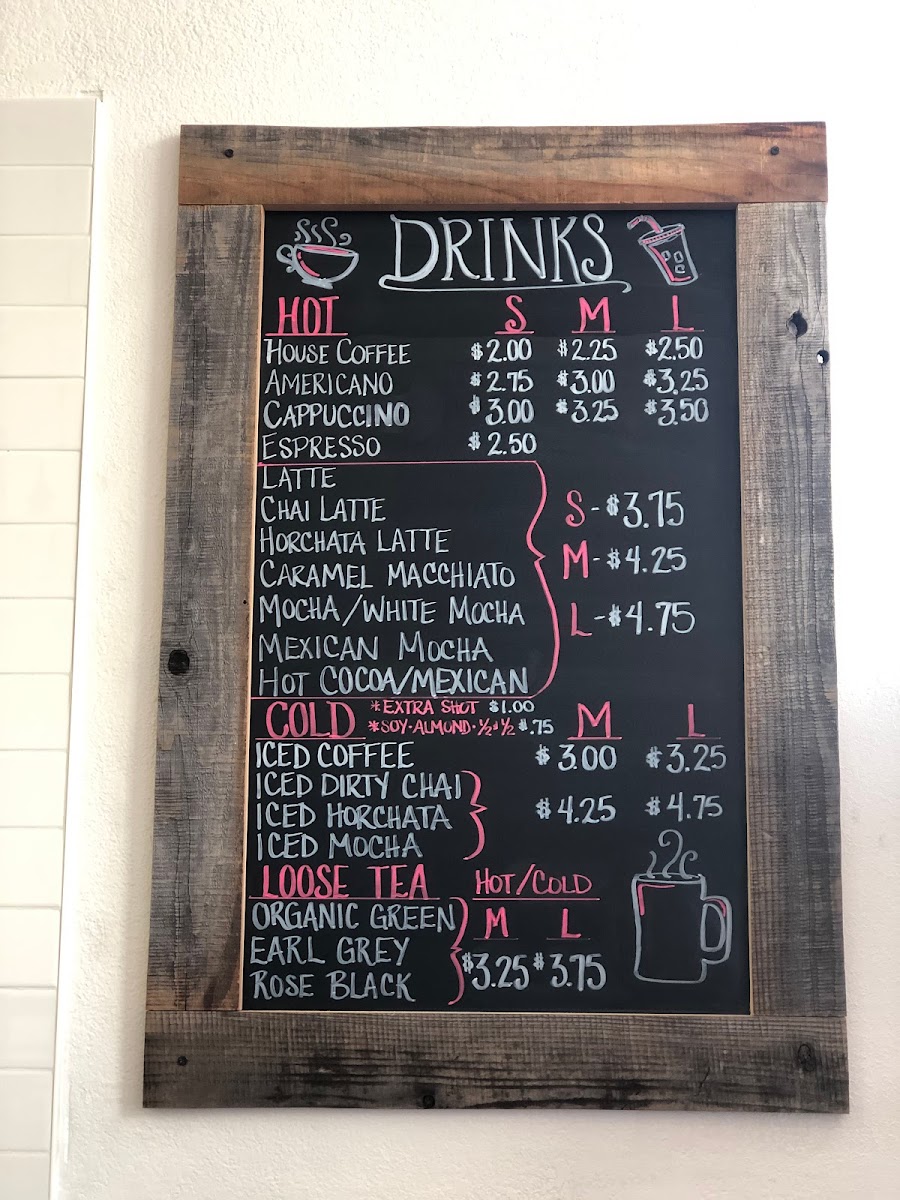 DRINKS
HOT S M L
HOUSE COFFEE $2.00 $2.25 $2.50
AMERICANO $2.75 $3.00 $3.25
CAPPUCCINO $3.00 $3.25 $3.50
ESPRESSO $2.50
LATTE
CHAI LATTE
HORCHATA LATTE
CARAMEL MACCHIATO
MOCHA/WHITE MOCHA
MEXICAN MOCHA
HOT COCOA/MEXICAN
S-$3.75
M-$4.25
L-$4.75
COLD M L
*EXTRA SHOT $1.00
*SOY·ALMOND·½&½ $.75
ICED COFFEE $3.00 $3.25
ICED DIRTY CHAI
ICED HORCHATA
ICED MOCHA
$4.25 $4.75
LOOSE TEA HOT/COLD
ORGANIC GREEN
EARL GREY
ROSE BLACK
M L
$3.25 $3.75